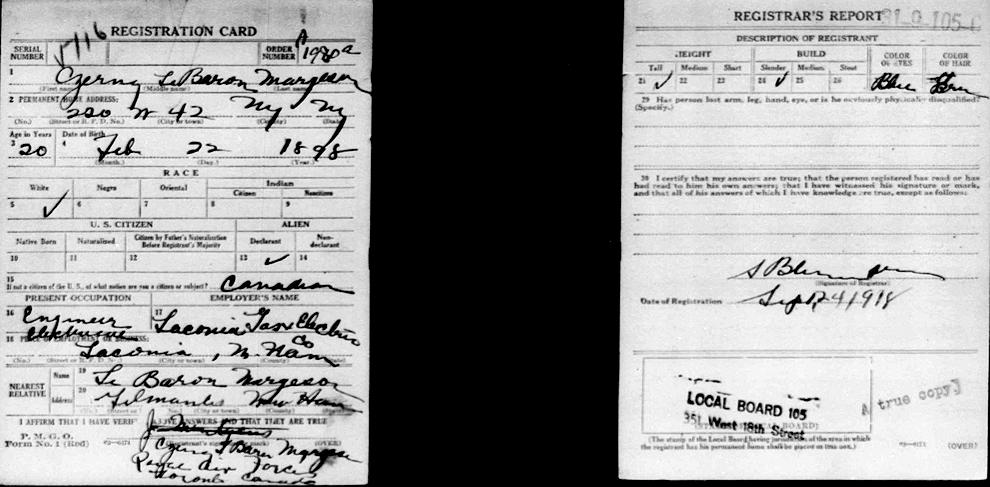 REGISTRATION CARD
SERIAL NUMBER 5716
ORDER NUMBER A 1980a
1 Czerny Le Baron Margeson
(First name) (Middle name) (Last name)
2 PERMANENT HOME ADDRESS:
220 W 42 Ny Ny
(No.) (Street or R. F. D. No.) (City or town) (County) (State)
Age in Years Date of Birth
3 20 4 Feb 22 1898
(Month.) (Day.) (Year.)
RACE
White Negro Oriental Indian
Citizen Noncitizen
5 ✓ 6 7 8 9
U. S. CITIZEN ALIEN
Native Born Naturalized Citizen by Father's Naturalization Before Registrant's Majority Declarant Non-declarant
10 11 12 13 ✓ 14
15 If not a citizen of the U. S., of what nation are you a citizen or subject? Canadian
PRESENT OCCUPATION EMPLOYER'S NAME
16 Engineer Electrical 17 Laconia Gas & Electric Co
18 PLACE OF EMPLOYMENT OR BUSINESS:
Laconia, N. Ham
(No.) (Street or R. F. D. No.) (City or town) (County) (State)
NEAREST RELATIVE
Name 19 Le Baron Margeson
Address 20 Gilmanton New Ham
(No.) (City or town) (County)
I AFFIRM THAT I HAVE VERIFIED ABOVE ANSWERS AND THAT THEY ARE TRUE
P. M. G. O.
Form No. 1 (Red) (Registrant's signature or mark) (OVER)
Czerny L Baron Margeson
Royal Air Force
Toronto Canada
REGISTRAR'S REPORT 31-9-105-C
DESCRIPTION OF REGISTRANT
HEIGHT BUILD COLOR OF EYES COLOR OF HAIR
Tall Medium Short Slender Medium Stout
21 ✓ 22 23 24 ✓ 25 26 Blue Brn
29 Has person lost arm, leg, hand, eye, or is he obviously physically disqualified?
(Specify.)
30 I certify that my answers are true; that the person registered has read or has
had read to him his own answers; that I have witnessed his signature or mark,
and that all of his answers of which I have knowledge are true, except as follows:
(Signature of Registrar)
Date of Registration Sept 24 1918
LOCAL BOARD 105
351 West 18th Street
A true copy.]
(STAMP OF LOCAL BOARD)
(The stamp of the Local Board having jurisdiction of the area in which
the registrant has his permanent home shall be placed in this box.) (OVER)